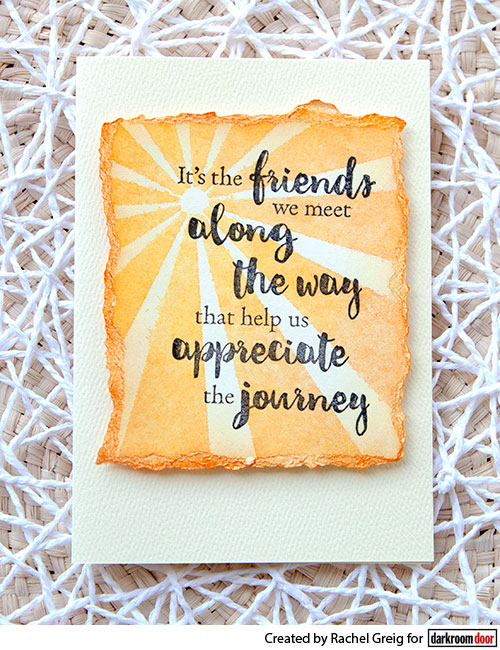 It's the friends
we meet
along
the way
that help us
appreciate
the journey
Created by Rachel Greig for darkroomdoor